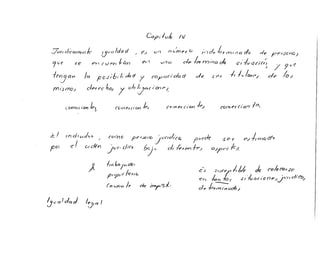 Capitulo IV
Juridicamente igualdad, es un número indeterminado de personas
que se encuentran en una determinada situación, y que
tengan la posibilidad y capacidad de ser titulares de los
mismos derechos y obligaciones.
comerciantes comerciantes comerciantes comerciante.
El individuo, como persona juridica puede ser estimado
por el orden juridico bajo diferentes aspectos.
trabajador
propietario
causante de impst.
Es susceptible de colocarse
en tantas situaciones juridicas,
determinadas
Igualdad legal